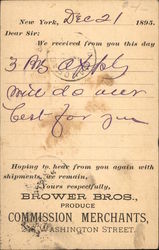 New York, Dec 21 1895.
Dear Sir:
We received from you this day
3 Bbls Apply
will do our
best for you
Hoping to hear from you again with
shipments, we remain,
Yours respectfully,
BROWER BROS.,
PRODUCE
COMMISSION MERCHANTS,
WASHINGTON STREET.